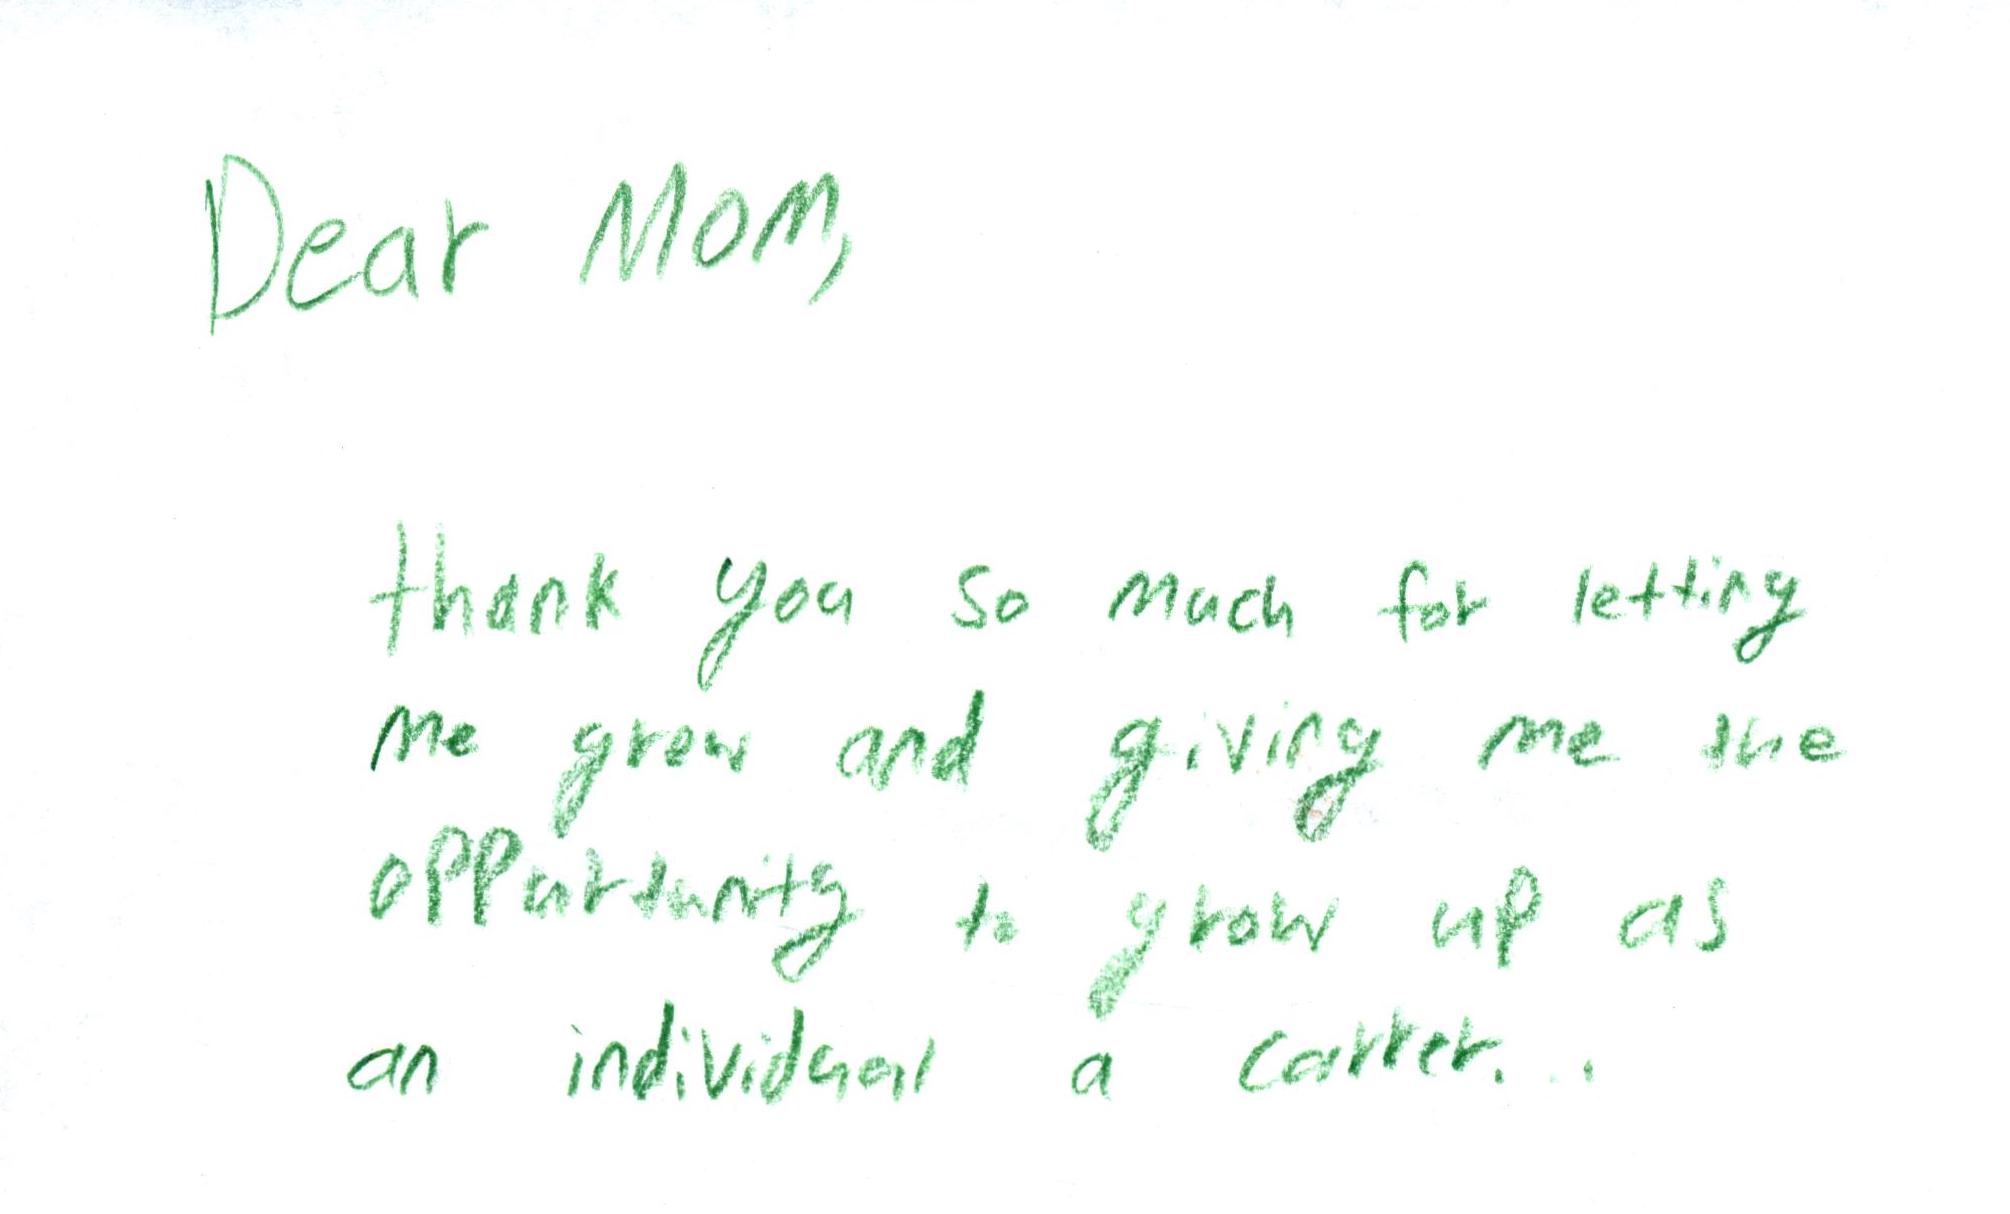 Dear Mom,
thank you so much for letting
me grow and giving me the
oppurtunity to grow up as
an individual a carrer...